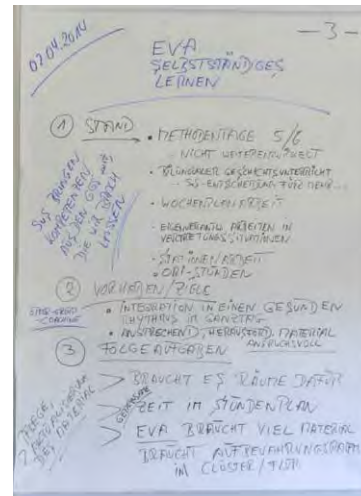 07.04.2014
— 3 —
EVA
SELBSTSTÄNDIGES
LERNEN
① STAND
• METHODENTAGE 5/6
NICHT WEITERENTWICKELT
• BILINGUALER GESCHICHTSUNTERRICHT
SuS-ENTSCHEIDUNG FÜR MEHR...
• WOCHENPLANARBEIT
• EIGENVERANTW. ARBEITEN IN
VERTRETUNGSSITUATIONEN
• STATIONENARBEIT
• ORI-STUNDEN
SuS BRINGEN
KOMPETENZEN
AUS DEN GS mit,
DIE WIR BRACH
LASSEN
② VORHABEN/ZIELE
• INTEGRATION IN EINEN GESUNDEN
RHYTHMUS IM GANZTAG
• ANSPRECHEND, HERAUSFORD. MATERIAL
ANSPRUCHSVOLL
COACHING
③ FOLGEAUFGABEN
> BRAUCHT ES RÄUME DAFÜR
> ZEIT IM STUNDENPLAN
> EVA BRAUCHT VIEL MATERIAL
BRAUCHT AUFBEWAHRUNGSRAUM
IM CLUSTER/FLUR
PFLEGE
? AKTUALISIERUNG
DES MATERIAL